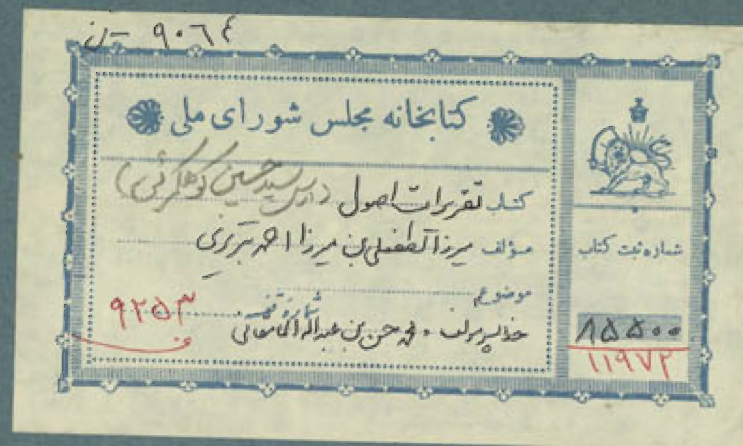 ۹۰۶۴ - ن
کتابخانه مجلس شورای ملی
کتاب تقریرات اصول (درس سید حسین کوهکمرئی)
مؤلف میرزا لطفعلی بن میرزا احمد تبریزی
موضوع
شماره قفسه
محمد حسن بن عبدالله المامقانی
۹۲۵۳
ف
شماره ثبت کتاب
۸۵۵۰۰
۱۱۹۷۲